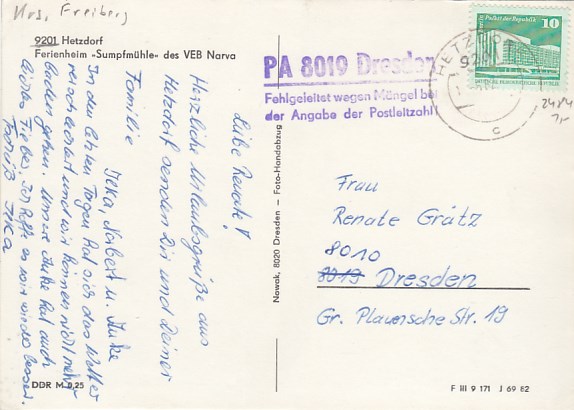 Krs. Freiberg
9201 Hetzdorf
Ferienheim „Sumpfmühle“ des VEB Narva
Liebe Renate!
Herzliche Urlaubsgrüße aus
Hetzdorf senden Dir und Deiner
Familie
Ilka, Norbert u. Anke
In den letzten Tagen hat sich das Wetter
verschlechtert und wir können nicht mehr
baden gehen. Unsere Anke hat auch
Fieber, Ich hoffe es wird wieder besser.
Gruß Ilka
DDR M 0,25
Nowak, 8020 Dresden – Foto-Handabzug
PA 8019 Dresden
Fehlgeleitet wegen Mängel bei
der Angabe der Postleitzahl
HETZDORF
c
Palast der Republik
10
DEUTSCHE DEMOKRATISCHE REPUBLIK
Frau
Renate Grätz
8010
8019 Dresden
Gr. Plauensche Str. 19
F III 9 171 J 69 82